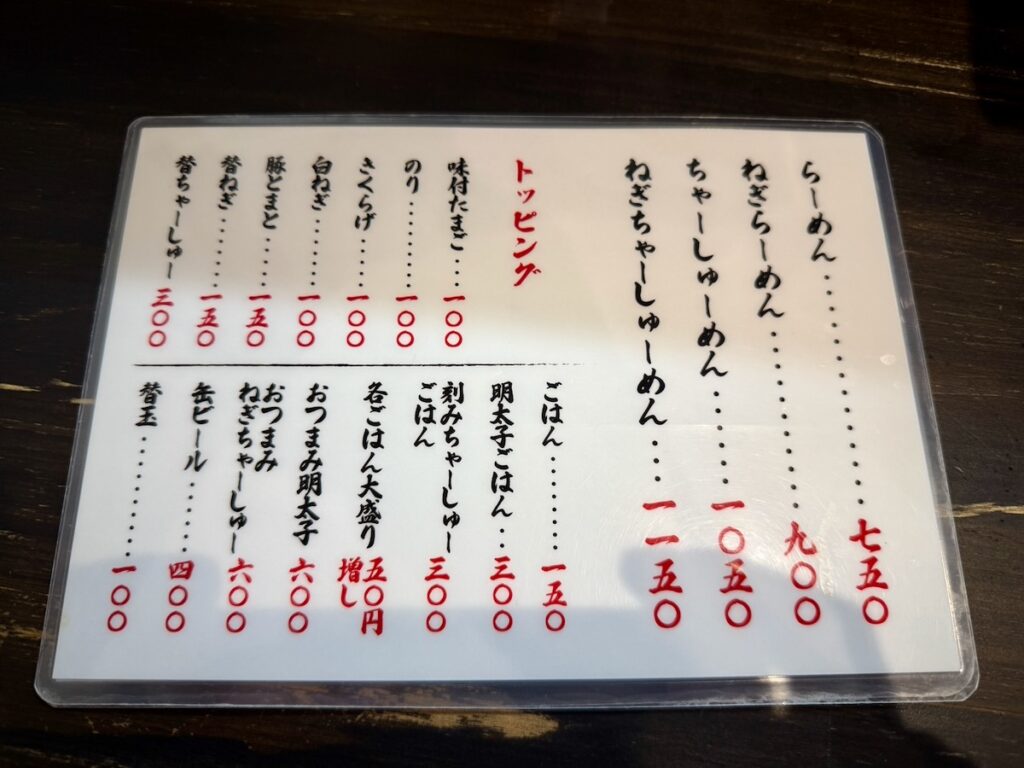 らーめん..................七五〇
ねぎらーめん..............九〇〇
ちゃーしゅーめん........一〇五〇
ねぎちゃーしゅーめん...一一五〇
トッピング
味付たまご...一〇〇
のり.........一〇〇
きくらげ.....一〇〇
白ねぎ.......一〇〇
豚とまと.....一五〇
替ねぎ.......一五〇
替ちゃーしゅー三〇〇
ごはん.........一五〇
明太子ごはん..三〇〇
刻みちゃーしゅー
ごはん 三〇〇
各ごはん大盛り五〇円
増し
おつまみ明太子 六〇〇
おつまみ
ねぎちゃーしゅー六〇〇
缶ビール......四〇〇
替玉..........一〇〇